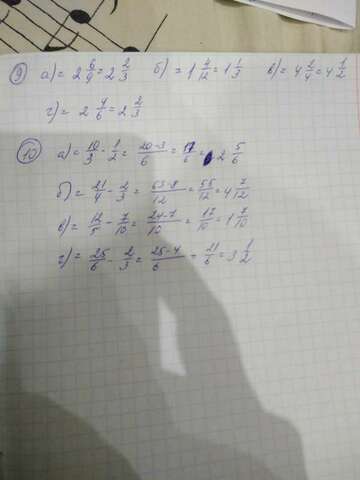 9) а) = 2 6/9 = 2 2/3 б) = 1 4/12 = 1 1/3 в) = 4 2/4 = 4 1/2
г) = 2 4/6 = 2 2/3
10) а) = 10/3 - 1/2 = 20-3/6 = 17/6 = 2 5/6
б) = 21/4 - 2/3 = 63-8/12 = 55/12 = 4 7/12
в) = 12/5 - 7/10 = 24-7/10 = 17/10 = 1 7/10
г) = 25/6 - 2/3 = 25-4/6 = 21/6 = 3 1/2